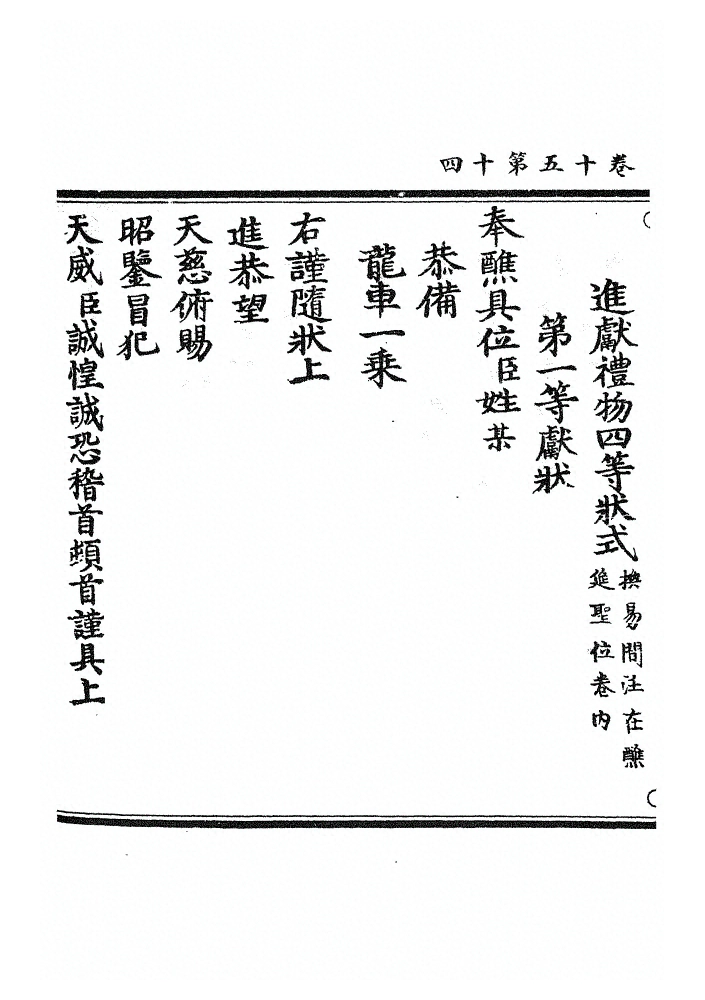 卷十五第十四
進獻禮物四等狀式 換易間注在醮
筵聖位卷內
第一等獻狀
奉醮具位臣姓某
恭備
龍車一乘
右謹隨狀上
進恭望
天慈俯賜
昭鑒冒犯
天威臣誠惶誠恐稽首頓首謹具上